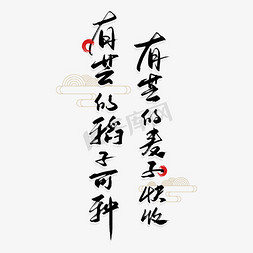 有芒的麦子快收
有芒的稻子可种